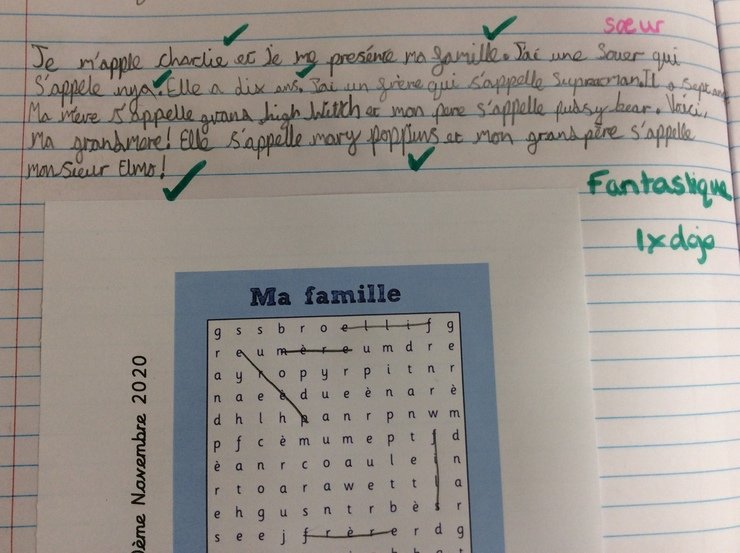 sœur
Je m'apple charlie et je me presénte ma famille. J'ai une Souer qui
S'appele nya. Elle a dix ans. J'ai un frère qui s'appelle Il a Sept ans
Ma mère s'appelle grand high Witch et mon pere s'appelle pudsy bear. Voici,
Ma grandmere! Elle s'appelle mary poppins et mon grand père s'appelle
monsieur Elmo!
Fantastique
1x dojo
Ma famille
g s s b r o e l l i f g
r e u m è r e u m d r e
a y r o p y r p i t n r
n a e è d u e è n a r è
d h l h p a n r p n w m
p f c è m u m e p t f d
è a n r c o a u l e i n
r t o a r a w e t t l a
e h g u s n t r b è s r
s e e j f r è r e r d g
ème Novembre 2020